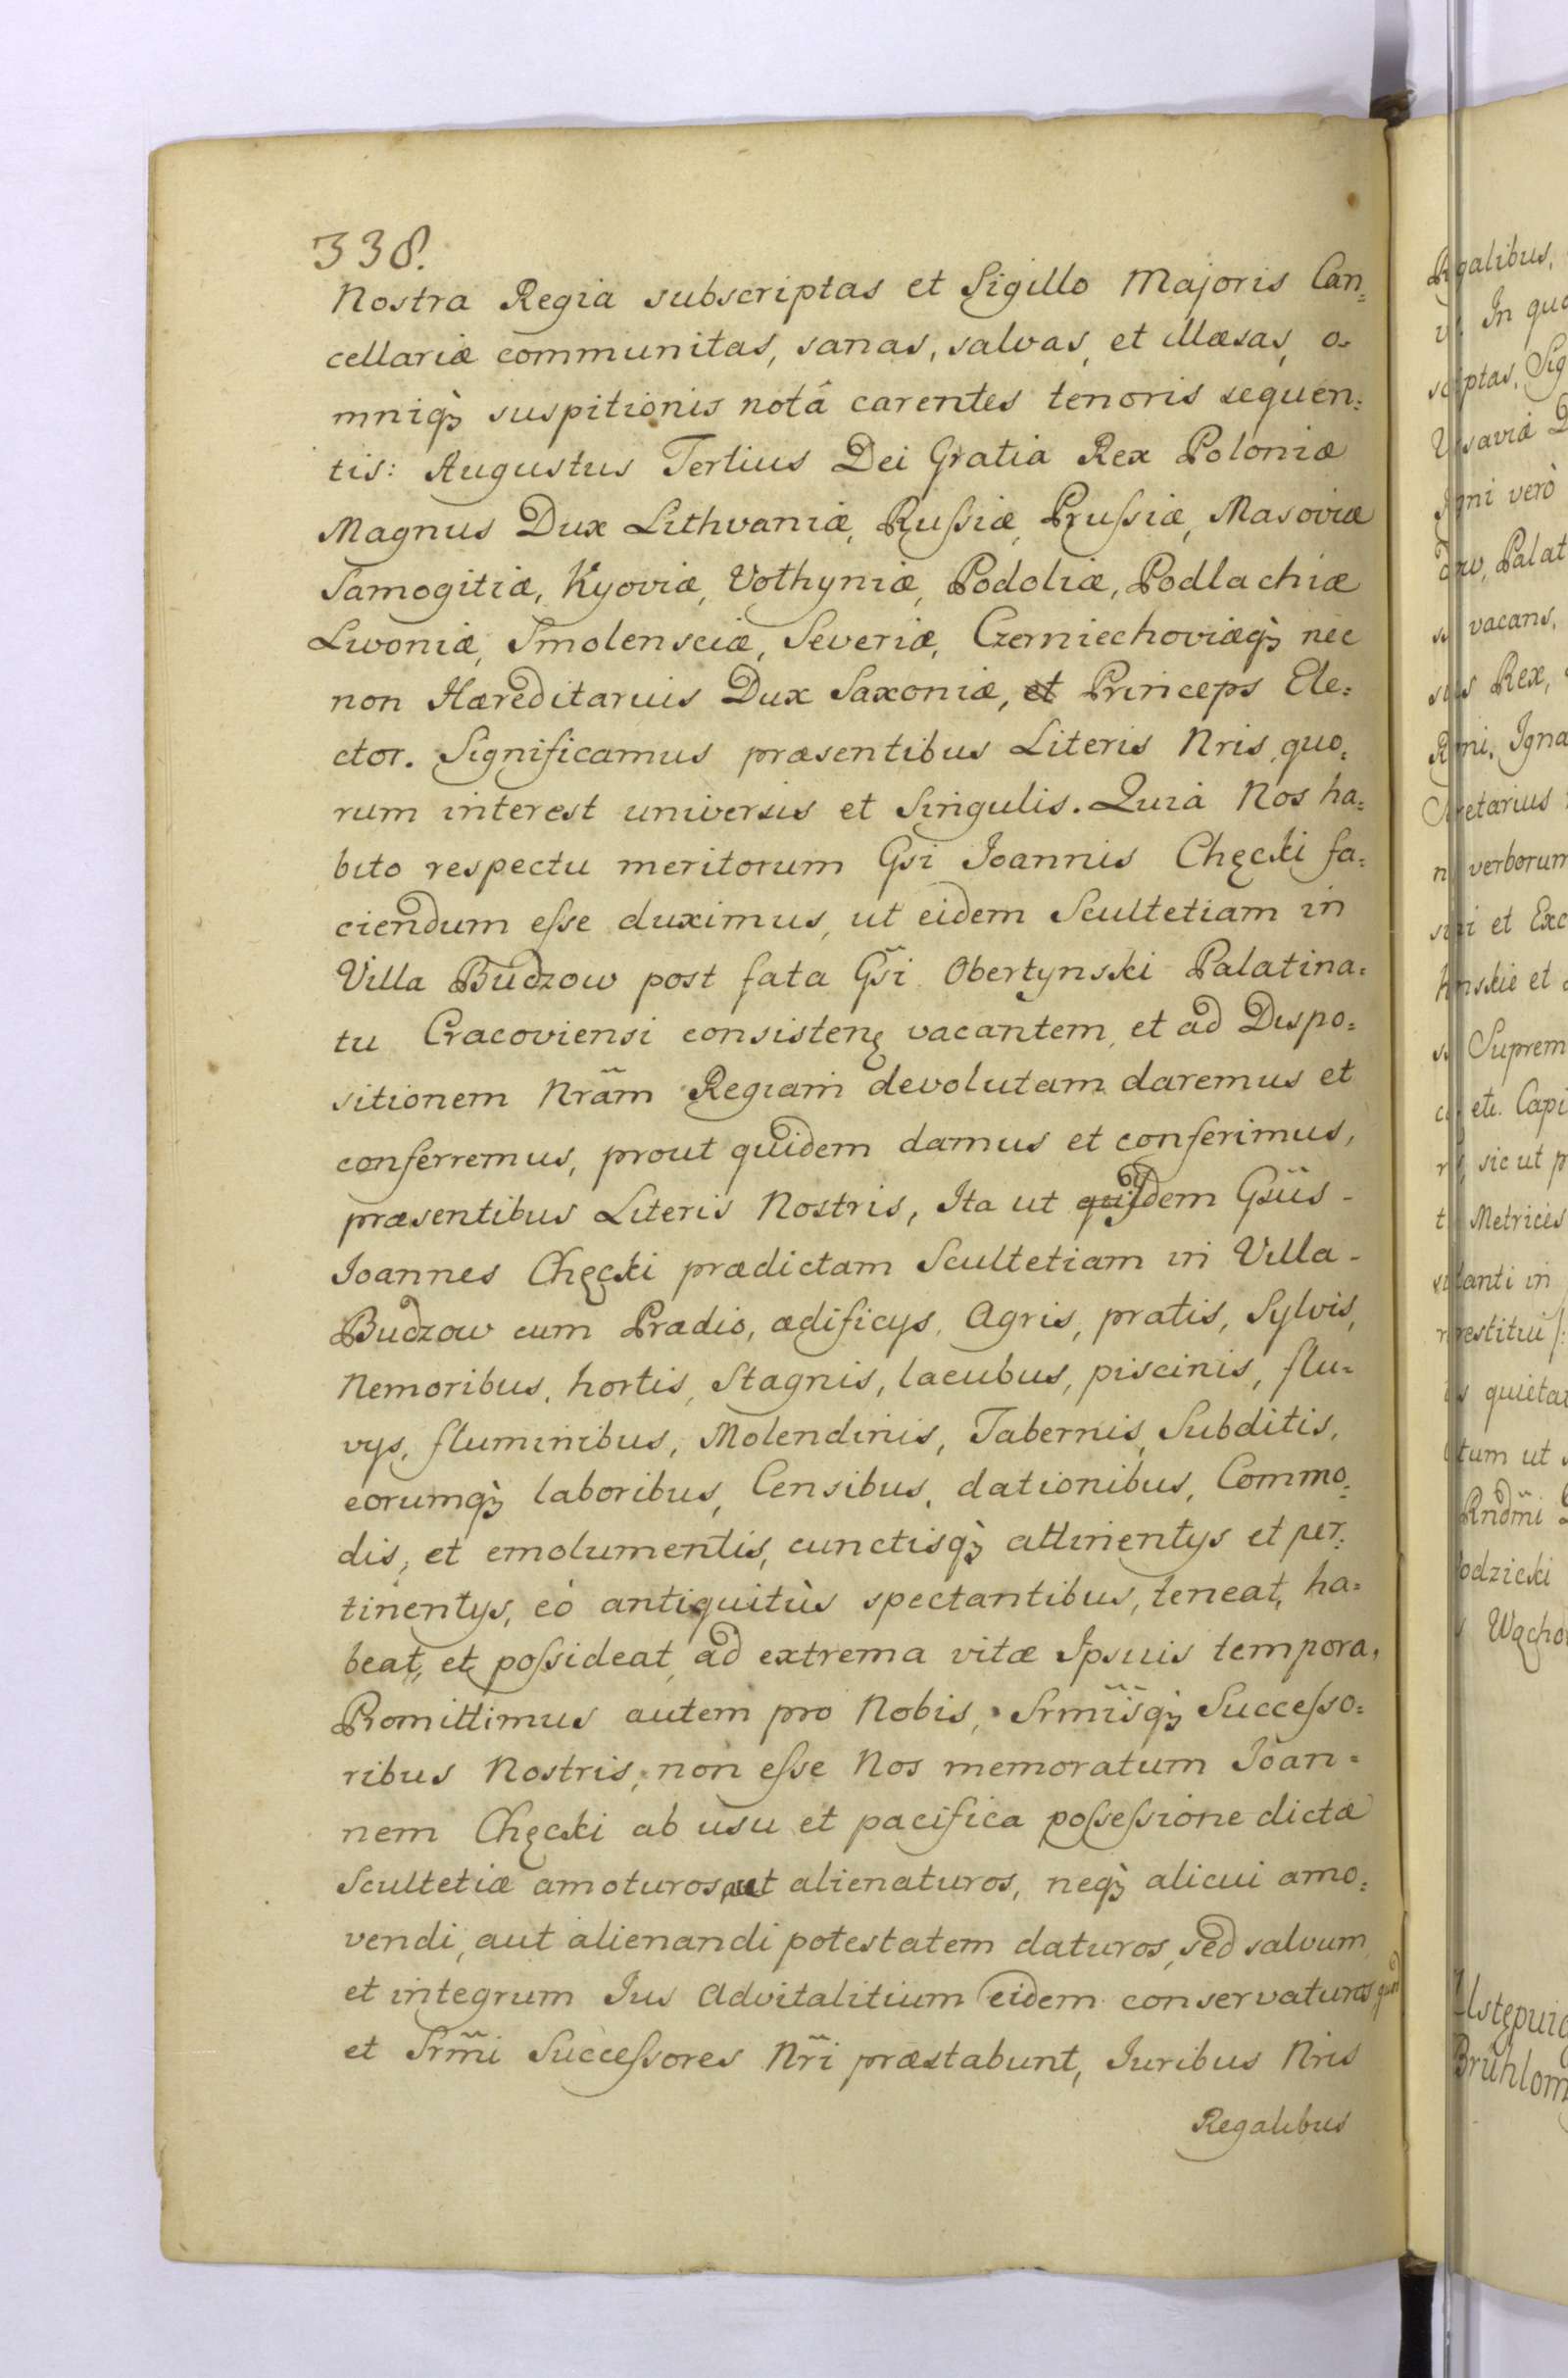 338.
Nostra Regia subscriptas et Sigillo Majoris Can=
cellariæ communitas, sanas, salvas, et illæsas, o=
mniqȝ suspitionis notâ carentes tenoris sequen=
tis: Augustus Tertius Dei Gratia Rex Poloniæ
Magnus Dux Lithvaniæ, Rußiæ, Prußiæ, Masoviæ
Samogitiæ, Kyoviæ, Volhyniæ, Podoliæ, Podlachiæ
Livoniæ, Smolensciæ, Severiæ, Czerniechoviæqȝ nec
non Hæreditarius Dux Saxoniæ, et Princeps Ele=
ctor. Significamus præsentibus Literis Nris, quo=
rum interest universis et Singulis. Quia Nos ha=
bito respectu meritorum Gsi Joannis Chęcki fa=
ciendum eſse duximus, ut eidem Scultetiam in
Villa Budzow post fata Gs̃i Obertynski Palatina=
tu Cracoviensi consisteñ vacantem, et ad Dispo=
sitionem Nrãm Regiam devolutam daremus et
conferremus, prout quidem damus et conferimus,
præsentibus Literis Nostris, Ita ut idem Gsũs
Joannes Chęcki prædictam Scultetiam in Villa
Budzow cum Prædio, ædificÿs, Agris, pratis, Sylvis,
Nemoribus, hortis, Stagnis, lacubus, piscinis, flu=
vÿs, fluminibus, Molendinis, Tabernis, Subditis,
eorumqȝ laboribus, Censibus, dationibus, Commo=
dis, et emolumentis, cunctisqȝ attinentÿs et per=
tinentÿs, eò antiquitùs spectantibus, teneat, ha=
beat, et poſsideat, ad extrema vitæ Ipsius tempora,
Promittimus autem pro Nobis, Srmĩsqȝ Succeſso=
ribus Nostris, non eſse Nos memoratum Joan=
nem Chęcki ab usu et pacifica poſseſsione dictæ
Scultetiæ amoturos, aut alienaturos, neqȝ alicui amo=
vendi, aut alienandi potestatem daturos, sed salvum
et integrum Jus Advitalitium eidem conservaturos quod
et Srm̃i Succeſsores Nr̃i præstabunt, Juribus Nris
Regalibus